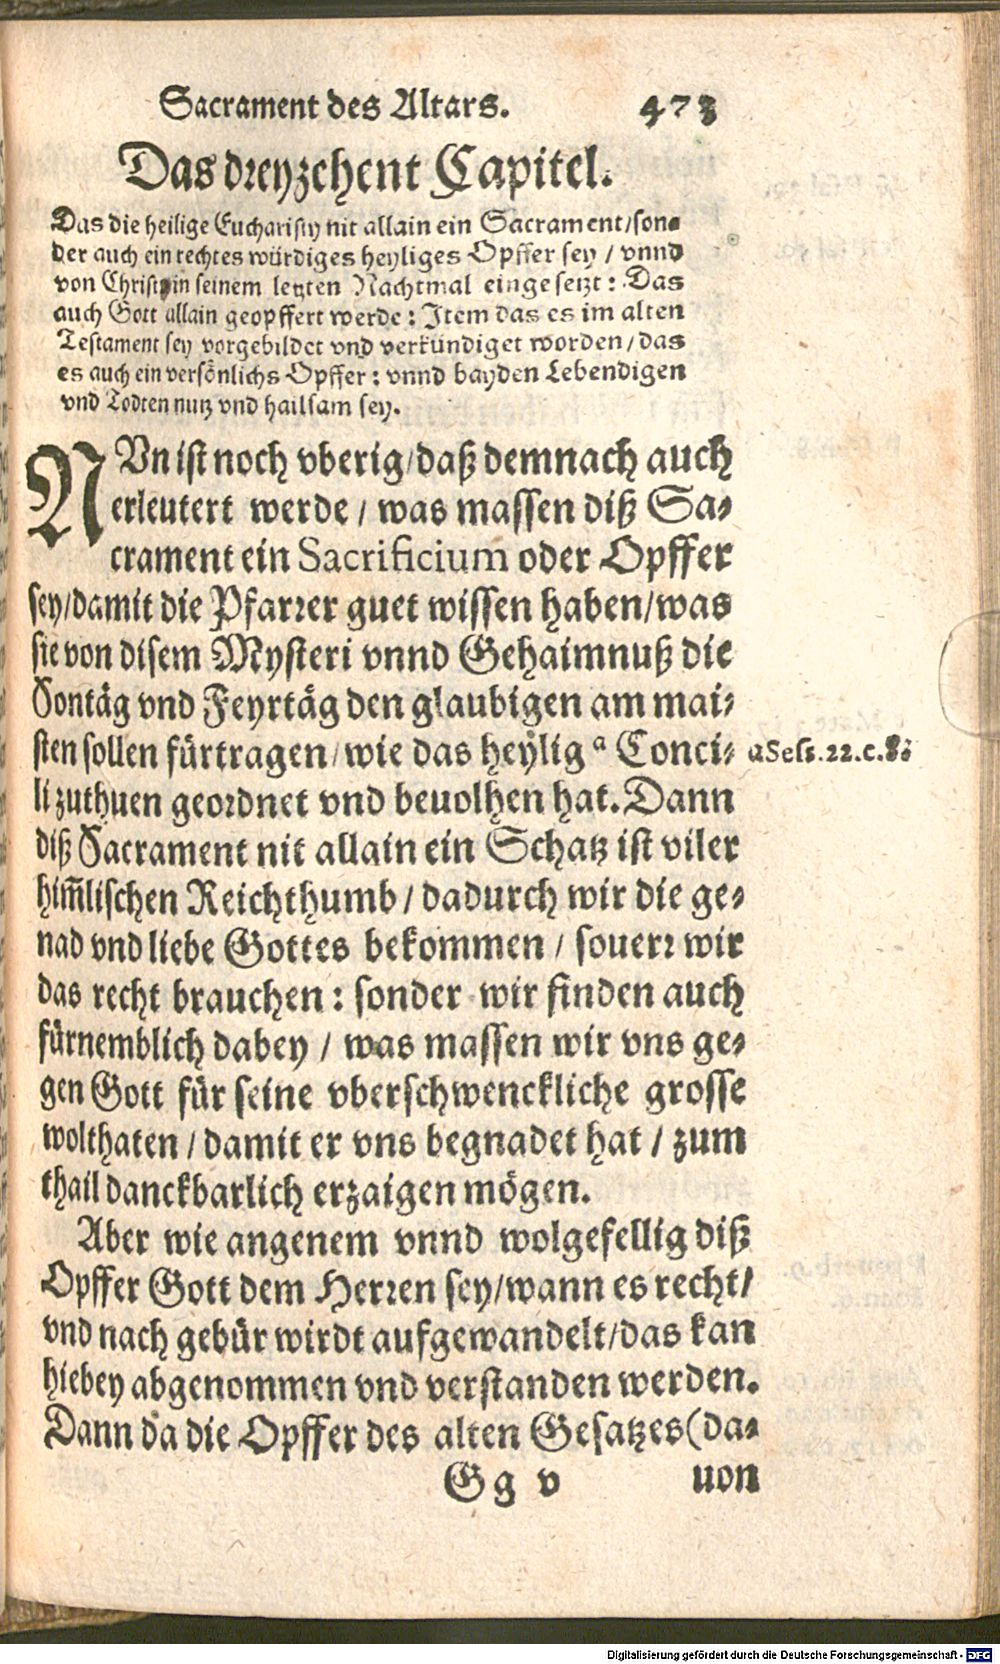 Sacrament des Altars. 473
Das dreyzehent Capitel.
Das die heilige Eucharisty nit allain ein Sacrament/son-
der auch ein rechtes würdiges heyliges Opffer sey / vnnd
von Christo in seinem letzten Nachtmal eingesetzt: Das
auch Gott allain geopffert werde: Item das es im alten
Testament sey vorgebildet vnd verkündiget worden/das
es auch ein versönlichs Opffer: vnnd bayden Lebendigen
vnd Todten nutz vnd hailsam sey.
NVn ist noch vberig/daß demnach auch
erleutert werde / was massen diß Sa-
crament ein Sacrificium oder Opffer
sey/damit die Pfarrer guet wissen haben/was
sie von disem Mysteri vnnd Gehaimnuß die
Sontäg vnd Feyrtäg den glaubigen am mai-
sten sollen fürtragen/wie das heylig a Conci-
li zuthuen geordnet vnd beuolhen hat. Dann
diß Sacrament nit allain ein Schatz ist viler
him̄lischen Reichthumb / dadurch wir die ge-
nad vnd liebe Gottes bekommen / souerr wir
das recht brauchen: sonder wir finden auch
fürnemblich dabey / was massen wir vns ge-
gen Gott für seine vberschwenckliche grosse
wolthaten / damit er vns begnadet hat / zum
thail danckbarlich erzaigen mögen.
Aber wie angenem vnnd wolgefellig diß
Opffer Gott dem Herren sey/wann es recht/
vnd nach gebür wirdt aufgewandelt/das kan
hiebey abgenommen vnd verstanden werden.
Dann da die Opffer des alten Gesatzes (da-
Gg v uon
a Sess. 22. c. 8.
Digitalisierung gefördert durch die Deutsche Forschungsgemeinschaft - DFG